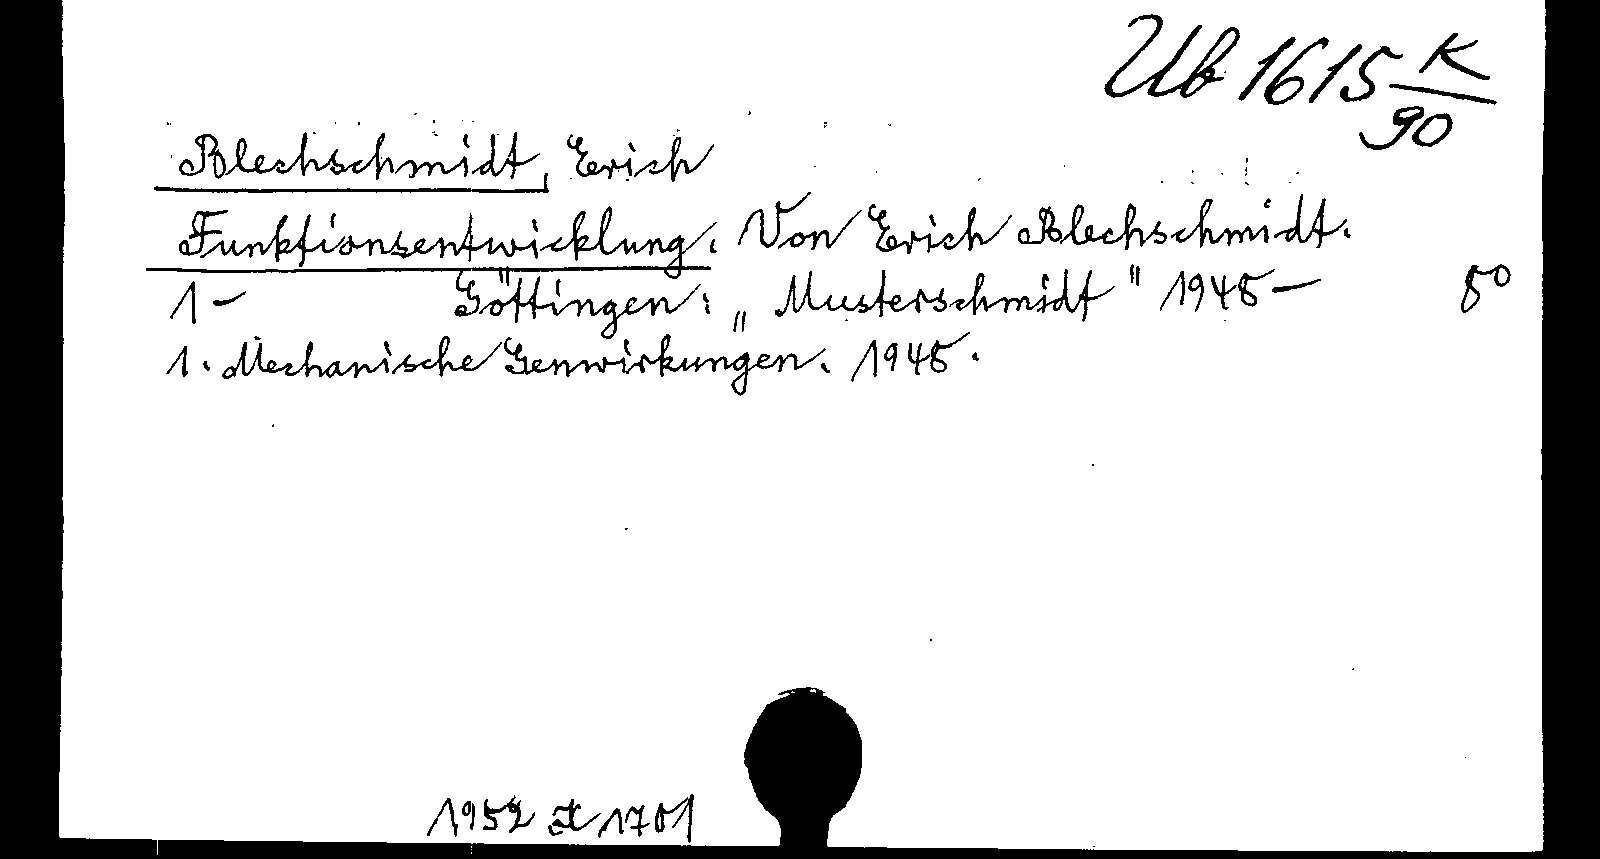 Ub 1615 K/90
Blechschmidt, Erich
Funktionsentwicklung. Von Erich Blechschmidt.
1- Göttingen: „Musterschmidt" 1948- 8°
1. Mechanische Genwirkungen. 1948.
1952 1701